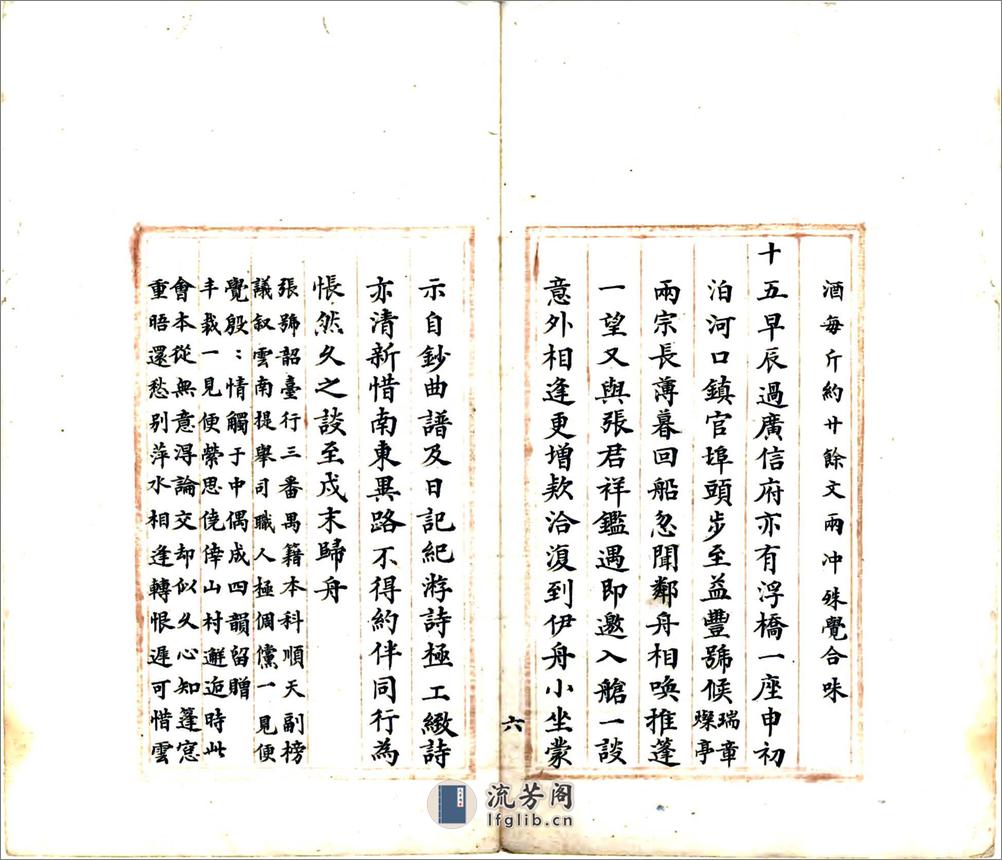 酒每斤約廿餘文兩冲殊覺合味
十五早辰過廣信府亦有浮橋一座申初
泊河口鎮官埠頭步至益豐號候瑞章燦亭
兩宗長薄暮回船忽聞鄰舟相喚推蓬
一望又與張君祥鑑遇即邀入艙一談
意外相逢更增欵洽復到伊舟小坐蒙
六
示自鈔曲譜及日記紀游詩極工緻詩
亦清新惜南東異路不得約伴同行為
悵然久之談至戌末歸舟
張號韶臺行三番禺籍本科順天副榜
議叙雲南提舉司職人極倜儻一見便
覺殷：情觸于中偶成四韻留贈
丰裁一見便縈思僥倖山村邂逅時此
會本從無意得論交却似久心知蓬窓
重晤還愁别萍水相逢轉恨遲可惜雲
流芳阁
lfglib.cn